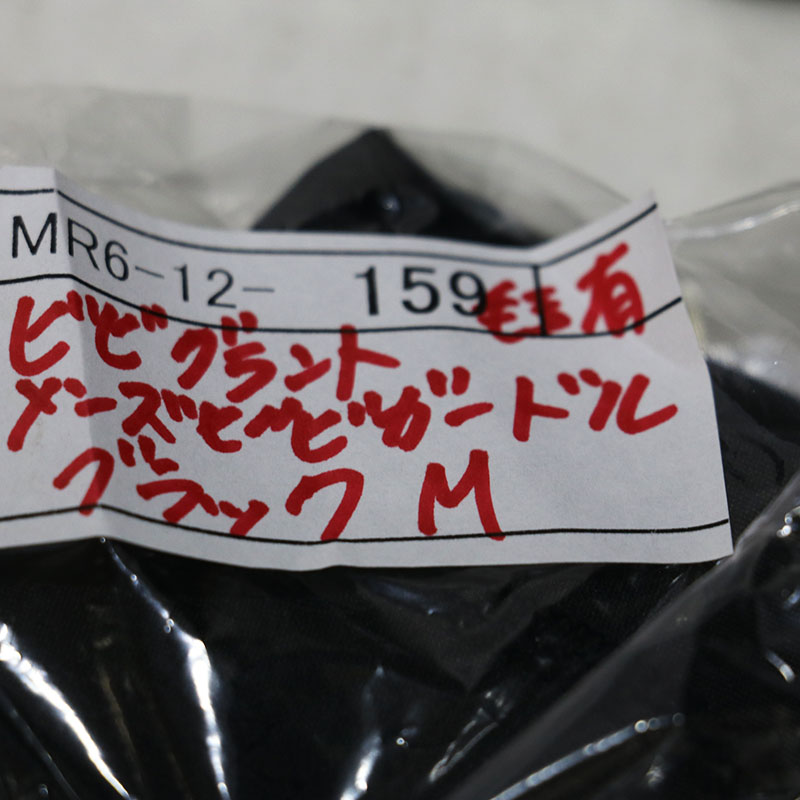 MR6-12- 159 毛有
ビビグラント
メンーズビビガードル
ブラック M